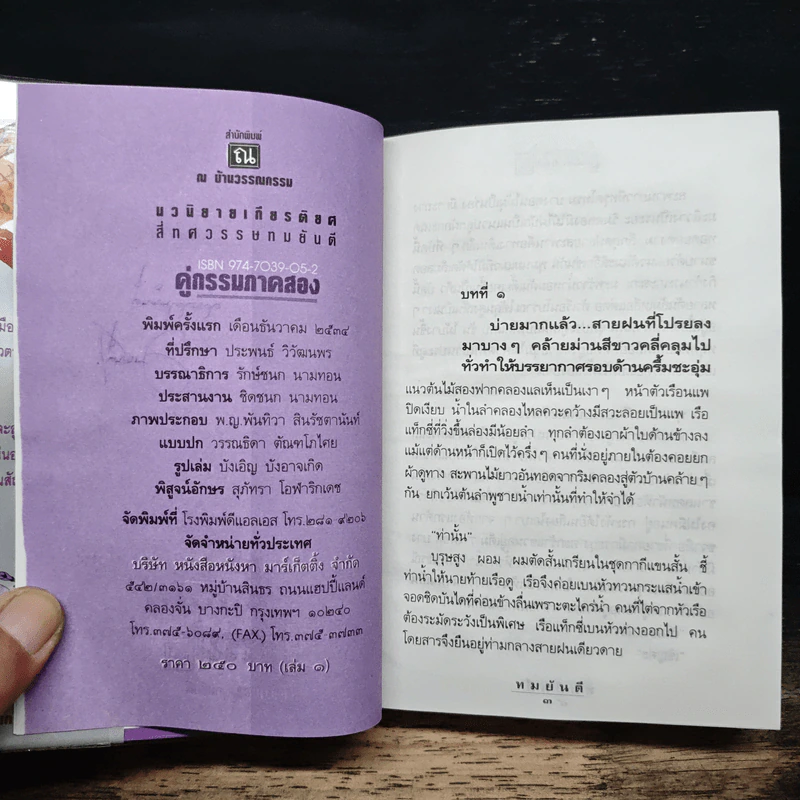 สำนักพิมพ์
ณ
ณ บ้านวรรณกรรม
นวนิยายเกียรติยศ
สี่ทศวรรษทมยันตี
ISBN 974-7039-05-2
คู่กรรมภาคสอง
พิมพ์ครั้งแรก เดือนธันวาคม ๒๕๓๔
ที่ปรึกษา ประพนธ์ วิวัฒนพร
บรรณาธิการ รักษ์ชนก นามทอน
ประสานงาน ชิดชนก นามทอน
ภาพประกอบ พ.ญ.พันทิวา สินรัชตานันท์
แบบปก วรรณธิดา ตัณฑโภไศย
รูปเล่ม บังเอิญ บังอาจเกิด
พิสูจน์อักษร สุภัทรา โอฬาริกเดช
จัดพิมพ์ที่ โรงพิมพ์ดีแอลเอส โทร.๒๘๑ ๙๒๐๖
จัดจำหน่ายทั่วประเทศ
บริษัท หนังสือหนังหา มาร์เก็ตติ้ง จำกัด
๕๔๒/๓๑๖๑ หมู่บ้านสินธร ถนนแฮปปี้แลนด์
คลองจั่น บางกะปิ กรุงเทพฯ ๑๐๒๔๐
โทร.๓๗๕-๖๐๘๙, (FAX.) โทร.๓๗๕ ๓๗๓๓
ราคา ๒๕๐ บาท (เล่ม ๑)
บทที่ ๑
บ่ายมากแล้ว...สายฝนที่โปรยลง
มาบางๆ คล้ายม่านสีขาวคลี่คลุมไป
ทั่วทำให้บรรยากาศรอบด้านครึ้มชะอุ่ม
แนวต้นไม้สองฟากคลองแลเห็นเป็นเงาๆ หน้าตัวเรือนแพ
ปิดเงียบ น้ำในลำคลองไหลควะคว้างมีสวะลอยเป็นแพ เรือ
แท็กซี่ที่วิ่งขึ้นล่องมีน้อยลำ ทุกลำต้องเอาผ้าใบด้านข้างลง
แม้แต่ด้านหน้าก็เปิดไว้ครึ่งๆ คนที่นั่งอยู่ภายในต้องคอยยก
ผ้าดูทาง สะพานไม้ยาวอันทอดจากริมคลองสู่ตัวบ้านคล้ายๆ
กัน ยกเว้นต้นลำพูชายน้ำเท่านั้นที่ทำให้จำได้
"ท่านั้น"
บุรุษสูง ผอม ผมตัดสั้นเกรียนในชุดกากีแขนสั้น ชี้
ท่าน้ำให้นายท้ายเรือดู เรือจึงค่อยเบนหัวทวนกระแสน้ำเข้า
จอดชิดบันไดที่ค่อนข้างลื่นเพราะตะไคร่น้ำ คนที่ไต่จากหัวเรือ
ต้องระมัดระวังเป็นพิเศษ เรือแท็กซี่เบนหัวห่างออกไป คน
โดยสารจึงยืนอยู่ท่ามกลางสายฝนเดียวดาย
ทมยันตี
๓